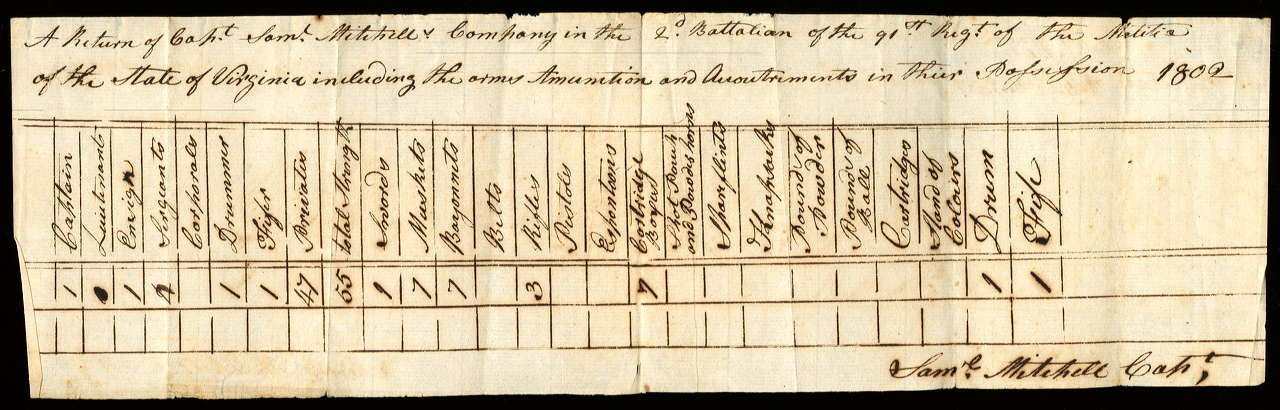 A Return of Capt. Saml. Mitchells Company in the 2d. Battalian of the 91st Regt. of the Militia
of the State of Virginia including the arms Amunition and Acoutriments in thier Possession 1802
Captain
Luietenants
Ensign
Sergants
Corporals
Drummer
Fifer
Privates
total Strength
Swords
Muskets
Bayonnets
Belts
Rifles
Pistols
Espontoons
Cartridge
Boxes
Shot Pouch
and Powder horns
Spareflints
Knapsacks
Pounds of
Powder
Pounds of
Ball
Cartridges
Stand of
Colours
Drum
Fife
1 1 4 1 1 47 55 1 7 7 3 7 1 1
Saml. Mitchell Capt.